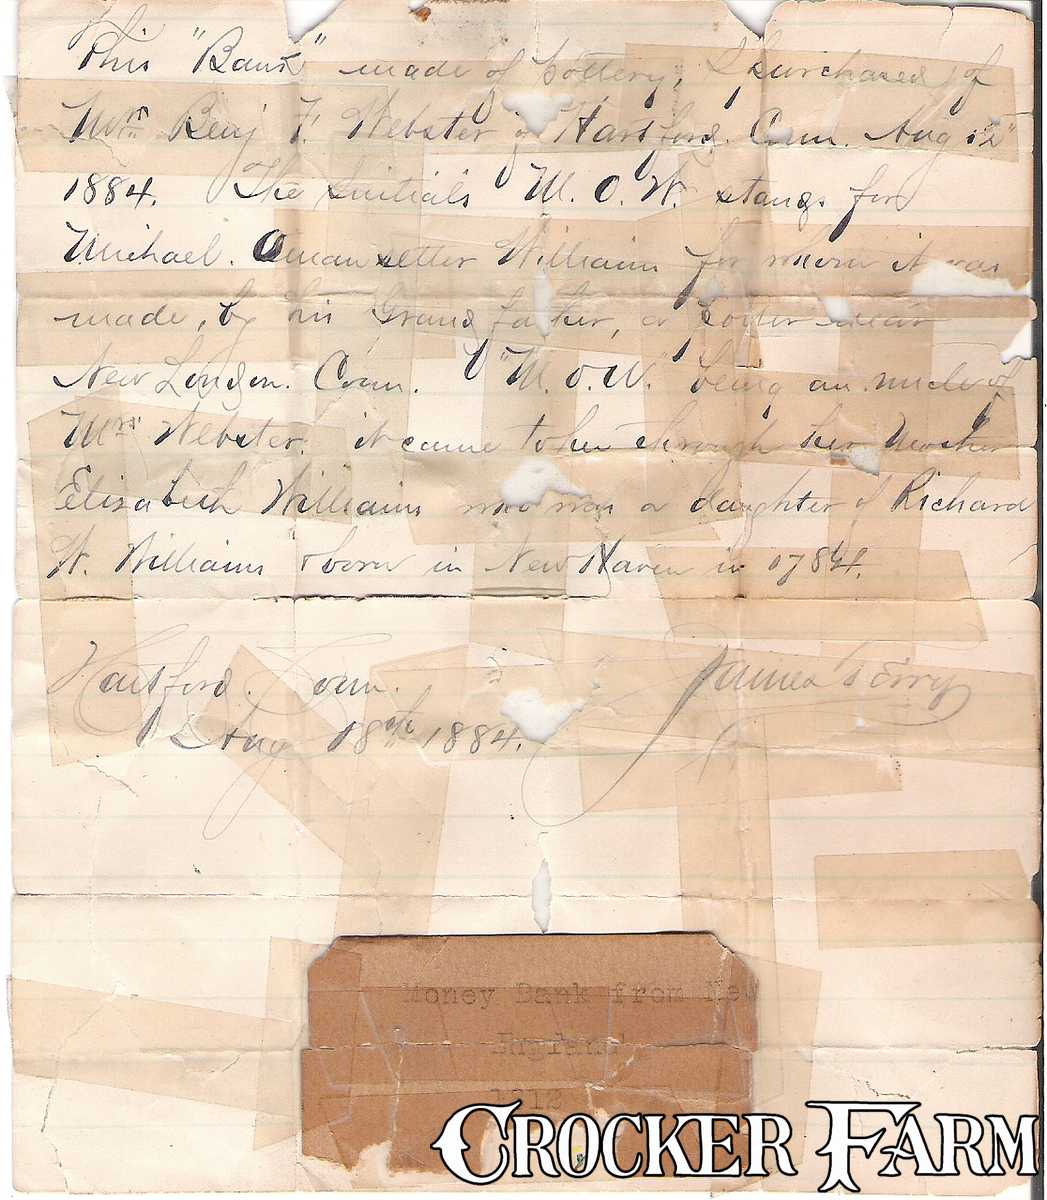 This "Bank" made of pottery, I purchased of
Mrs. Benj F. Webster of Hartford. Conn. Aug 12"
1884. The Initials M. O. W. stands for
Michael. Omansetter Williams for whom it was
made, by his Grandfather, a Potter near
New London. Conn. "M. O. W." being an uncle of
Mrs. Webster. it came to her through her Mother
Elizabeth Williams who was a daughter of Richard
W. Williams & born in New Haven in 1784.
Hartford. Conn. James Terry
Aug 18th 1884.
Money Bank from New
England
1812
CROCKER FARM